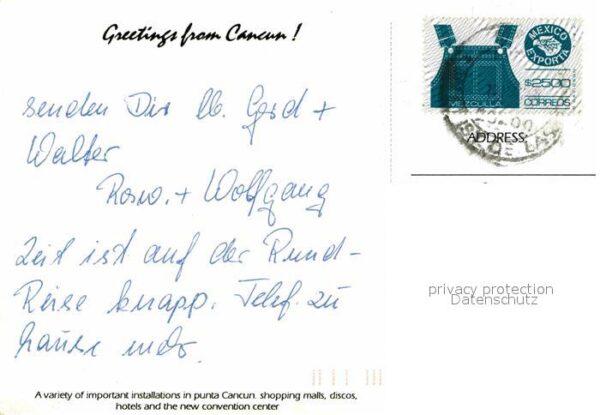 Greetings from Cancun !
senden Dir lb. Gerd +
Walter
Rosw. + Wolfgang
Zeit ist auf der Rund-
Reise knapp. Telef. zu
hause
MEXICO
EXPORTA
$2500
CORREOS
MEZCLILLA
ADDRESS:
privacy protection
Datenschutz
A variety of important installations in punta Cancun. shopping malls, discos,
hotels and the new convention center